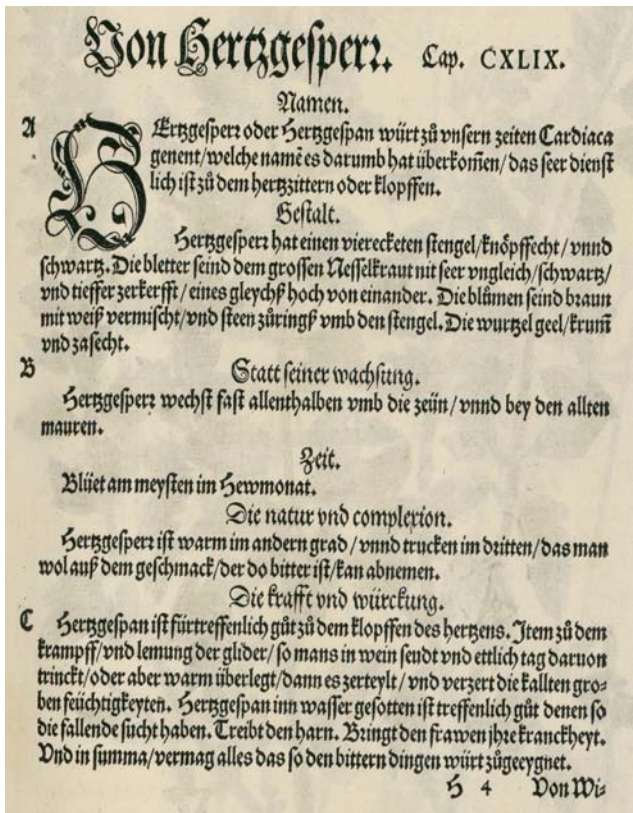 Von Hertzgesperr. Cap. CXLIX.
Namen.
A
HErtzgesperr oder Hertzgespan würt zů vnsern zeiten Cardiaca
genent/welche namē es darumb hat überkom̃en/das seer dienst
lich ist zů dem hertzzittern oder klopffen.
Gestalt.
Hertzgesperr hat einen viereckteten stengel/knöpffecht/vnnd
schwartz. Die bletter seind dem grossen Nesselkraut nit seer vngleich/schwartz/
vnd tieffer zerkerfft/eines gleychß hoch von einander. Die blůmen seind braun
mit weiß vermischt/vnd steen zůringß vmb den stengel. Die wurtzel geel/krum̃
vnd zasecht.
B
Statt seiner wachsung.
Hertzgesperr wechst fast allenthalben vmb die zeün/vnnd bey den allten
mauren.
Zeit.
Blüet am meysten im Hewmonat.
Die natur vnd complexion.
Hertzgesperr ist warm im andern grad/vnnd trucken im dritten/das man
wol auß dem geschmack/der do bitter ist/kan abnemen.
Die krafft vnd würckung.
C
Hertzgespan ist fürtreffenlich gůt zů dem klopffen des hertzens. Item zů dem
krampff/vnd lemung der glider/so mans in wein seudt vnd ettlich tag daruon
trinckt/oder aber warm überlegt/dann es zerteylt/vnd verzert die kallten gro⸗
ben feüchtigkeyten. Hertzgespan inn wasser gesotten ist treffenlich gůt denen so
die fallende sucht haben. Treibt den harn. Bringt den frawen jhre kranckheyt.
Vnd in summa/vermag alles das so den bittern dingen würt zůgeeygnet.
H 4 Von Wi⸗